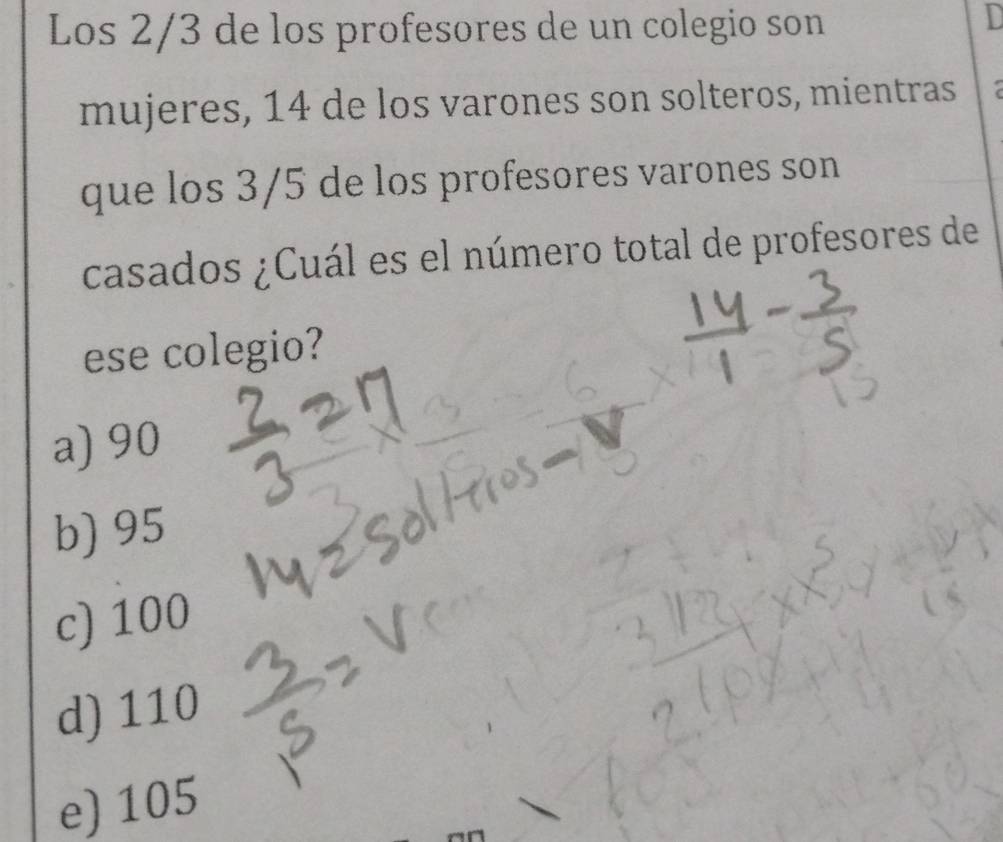 Los 2/3 de los profesores de un colegio son
mujeres, 14 de los varones son solteros, mientras
que los 3/5 de los profesores varones son
casados ¿Cuál es el número total de profesores de
ese colegio?
14/1 - 3/5
a) 90
2/3 = M
14 = solteros - V
b) 95
c) 100
3/5 = V
d) 110
e) 105